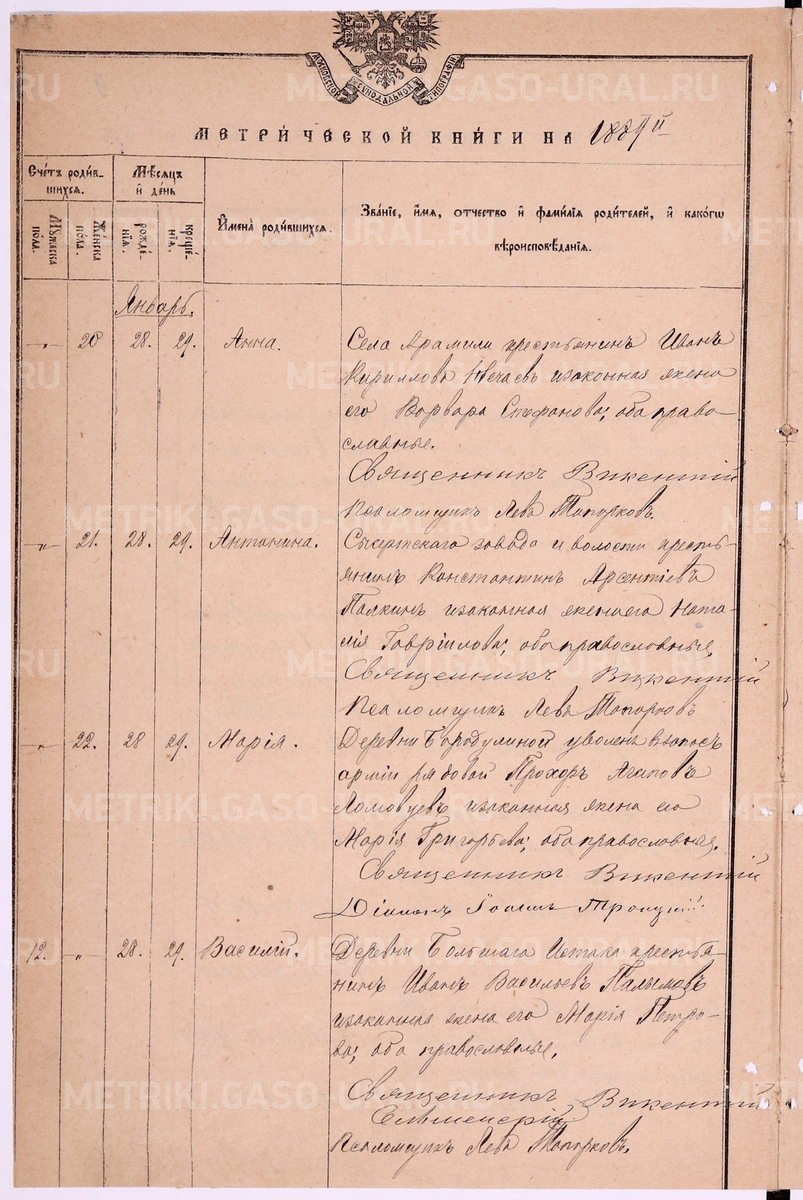 МОСКОВСКОЙ СѴНОДАЛЬНОЙ ТИПОГРАФІИ
МЕТРИ́ЧЕСКОЙ КНИ́ГИ НА
Сче́тъ роди́в-
шихсѧ.
Мѣ́сѧцъ
и҆ де́нь
И҆мена̀ роди́вшихсѧ.
Зва́нїе, и҆́мѧ, ѻ҆́тчество и҆ фами́лїѧ роди́телей, и҆ како́гѡ
вѣроисповѣ́данїѧ.
Мꙋ́жеска
по́ла.
Же́нска
по́ла.
рожде́-
нїѧ.
креще́-
нїѧ.
Январь.
-„- 20 28. 29. Анна.
Села Арамили крестьянинъ Иванъ
Кирилловъ Нечаевъ изаконная жена
его Варвара Стефанова; оба право-
славные.
Священникъ Викентій
Псаломщикъ Левъ Топорковъ.
-„- 21. 28. 29. Антонина.
Сысертскаго завода и волости кресть-
янинъ Константинъ Арсентіевъ
Палкинъ изаконная женаего Ната-
лія Гавріилова; оба православные.
Священникъ Викентій
Псаломщикъ Левъ Топорковъ
-„- 22. 28 29. Марія.
Деревни Бородулиной уволенъ взапасъ
арміи рядовой Прохоръ Агаповъ
изаконная жена его
Марія Григорьева; оба православные.
Священникъ Викентій
Діаконъ Іоаннъ Троицкій
12. -„- 28. 29. Василій.
Деревни Большаго Истока крестья-
нинъ Иванъ Васильевъ Палымовъ
изаконная жена его Марія Петро-
ва; оба православные.
Священникъ Викентій
Псаломщикъ Левъ Топорковъ.
METRIKI.GASO-URAL.RU